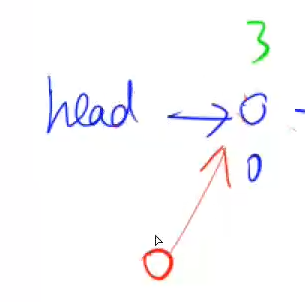 3
head → O
0